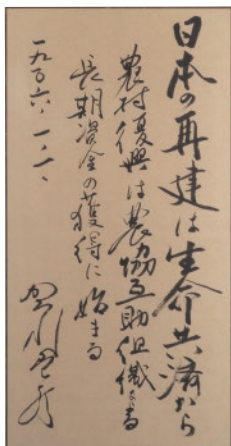 日本の再建は生命共済から
農村復興は農協互助組織による
長期資金の獲得に始まる
一九五六、一、一、
賀川豊彦